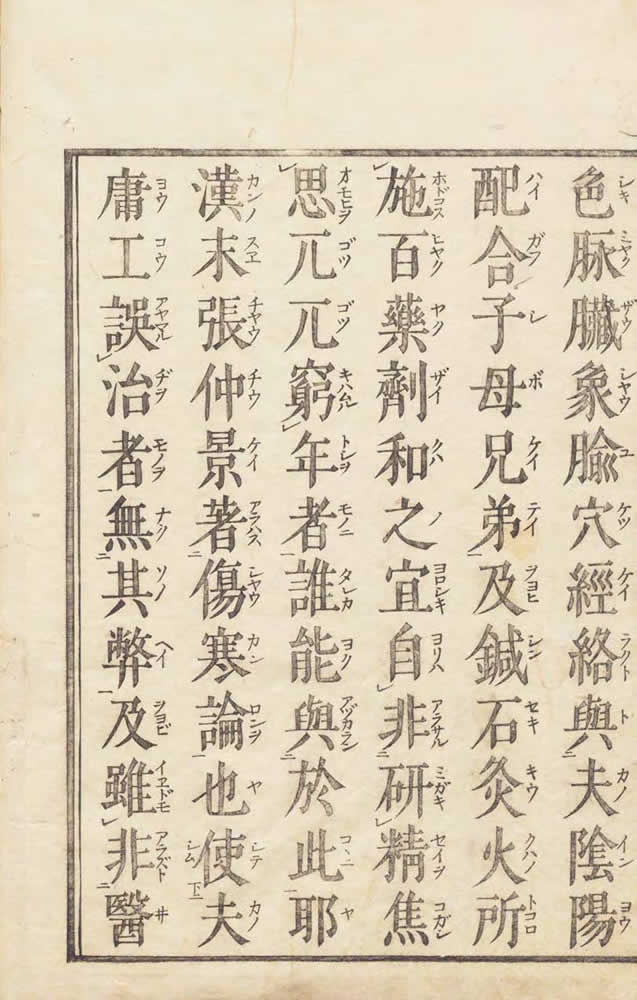 色脉臟象腧穴經絡與夫陰陽
配合子母兄弟及鍼石灸火所
施百藥劑和之宜自非研精焦
思兀兀窮年者誰能與於此耶
漢末張仲景著傷寒論也使夫
庸工誤治者無其弊及雖非醫